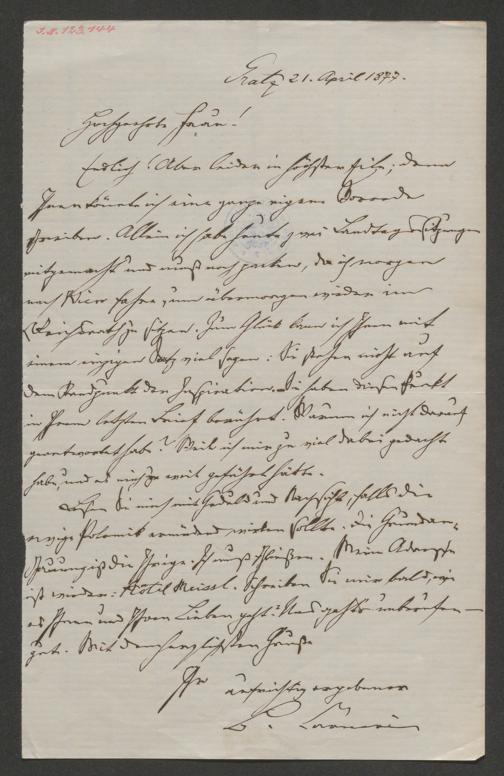 J.N. 123.144
Gratz 21. April 1877.
Hochgeehrte Frau!
Endlich! Aber leider in höchster Eile; denn
Ihnen könnte ich eine ganze eigene
schreiben. Allein ich habe heute zwei Landtagssitzungen
mitgemacht und muß noch packen, da ich morgen
nach Wien fahre, um übermorgen wieder im
Reichsrath zu sitzen. Zum Glück kann ich Ihnen mit
einem einzigen Satz viel sagen: Sie stehen nicht auf
dem Standpunkt der Inspiration. Sie haben diesen Punkt
in Ihrem letzten Brief berührt. Warum ich nicht darauf
geantwortet habe? Weil ich mir zu viel dabei gedacht
habe, und es mich zu weit geführt hätte.
Sie mich mit Geduld und Nachsicht, falls die
ewige Polemik ermüdend wirken sollte. Die Grundan-
schauung ist die Ihrige. Ich muß schließen. Meine Adresse
ist wieder: Hôtel Meissl. Schreiben Sie mir bald, wie
es Ihnen und Ihren Lieben geht. Uns geht's unberufen
gut. Mit dem herzlichsten Gruße
Ihr aufrichtig ergebener
B. Carneri